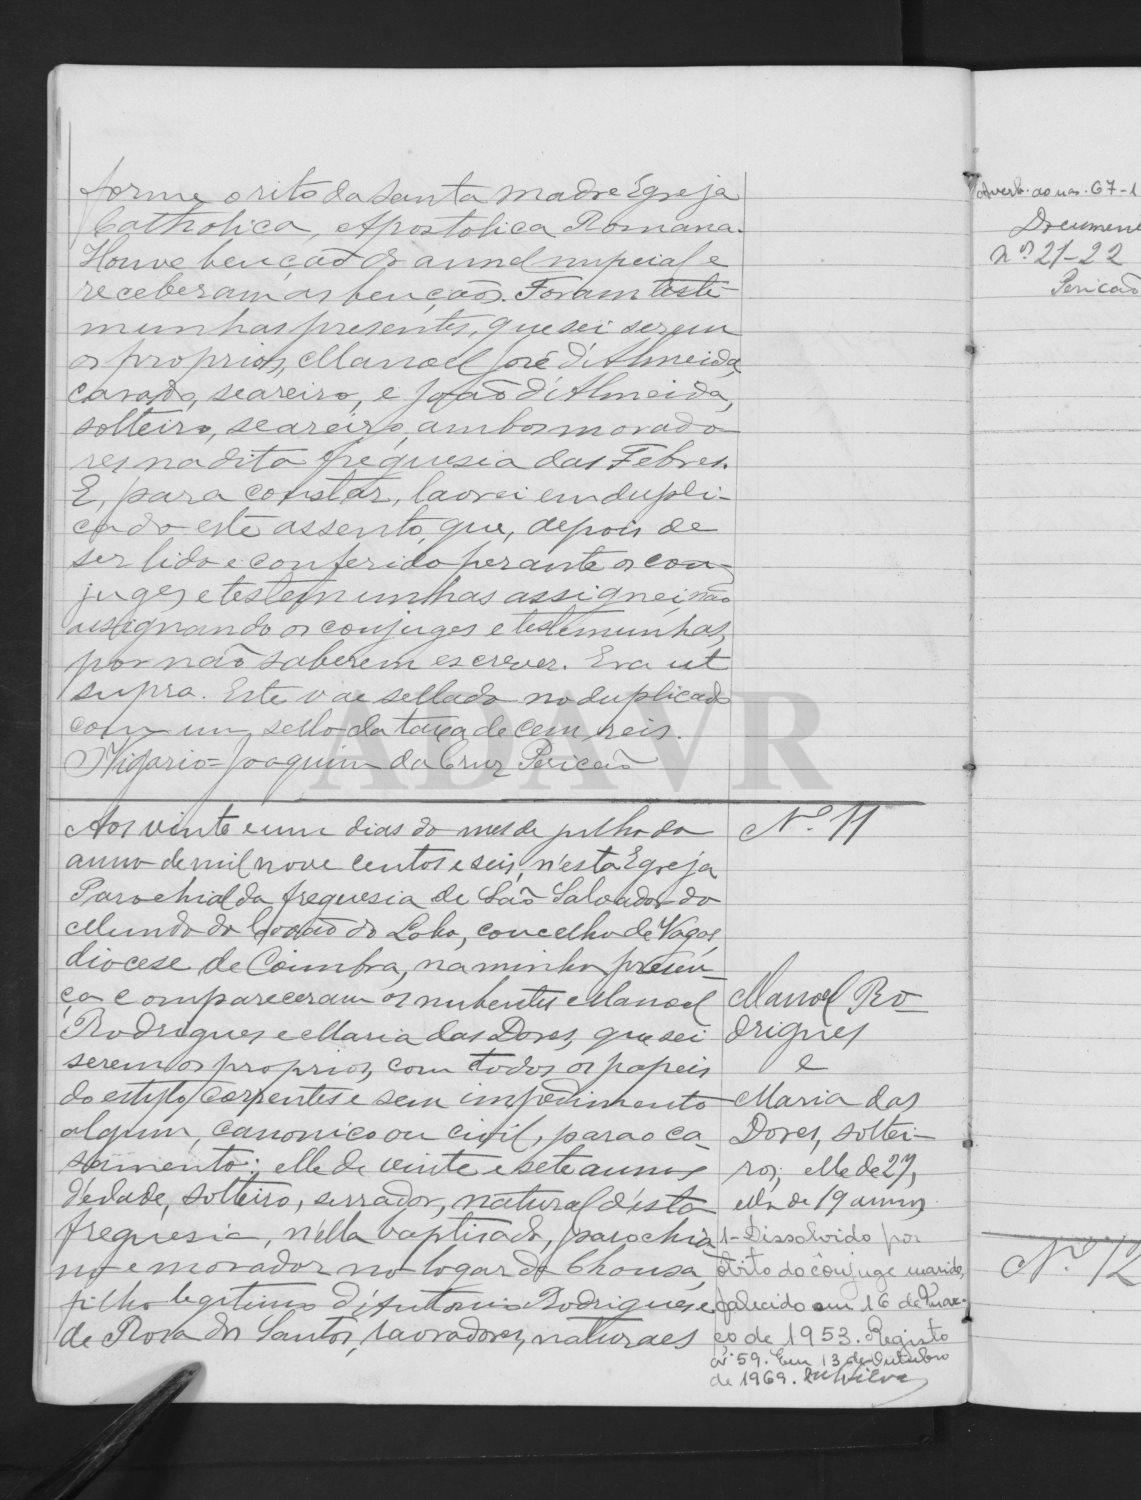 forme o rito da Santa Madre Egreja
Catholica, Apostolica Romana.
Houve benção do annel nupcial e
receberam as bençãos. Foram teste-
munhas presentes, que sei serem
os proprios, Manoel José d'Almeida,
casado, seareiro, e João d'Almeida,
solteiro, seareiro, ambos morado
res na dita freguesia das Febres.
E, para constar, lavrei em dupli-
cado este assento, que, depois de
ser lido e conferido perante os con-
juges e testemunhas assignei, não
assignando os conjuges e testemunhas,
por não saberem escrever. Era ut
supra. Este vae sellado no duplicado
com um sello da taxa de cem reis.
O Vigario = Joaquim da Cruz Pericão
Aos vinte e um dias do mes de julho do
anno de mil nove centos e seis, n'esta Egreja
Parochial da freguesia de São Salvador do
Mundo do Covão do Lobo, concelho de Vagos,
diocese de Coimbra, na minha presen-
ça compareceram os nubentes Manoel
Rodrigues e Maria das Dores, que sei
serem os proprios, com todos os papeis
do estylo correntes e sem impedimento
algum, canonico ou civil, para o ca-
samento: elle de vinte e sete annos
d'edade, solteiro, serrador, natural d'esta
freguesia, n'ella baptisado, parochia
no e morador no logar da Chousa,
filho legitimo d'Antonio Rodrigues e
de Rosa dos Santos, lavradores, naturaes
Nº 11
Manoel Ro-
drigues
e
Maria das
Dores, soltei-
ros; elle de 27,
ella de 19 annos
1- Dissolvido por
óbito do cônjuge marido,
falecido em 16 de Mar-
ço de 1953. Registo
nº 59. Em 13 de Outubro
de 1969.
Averb. ao nas. 67-1
Documen
nº 21-22
Pericão
Nº 12
ADAVR